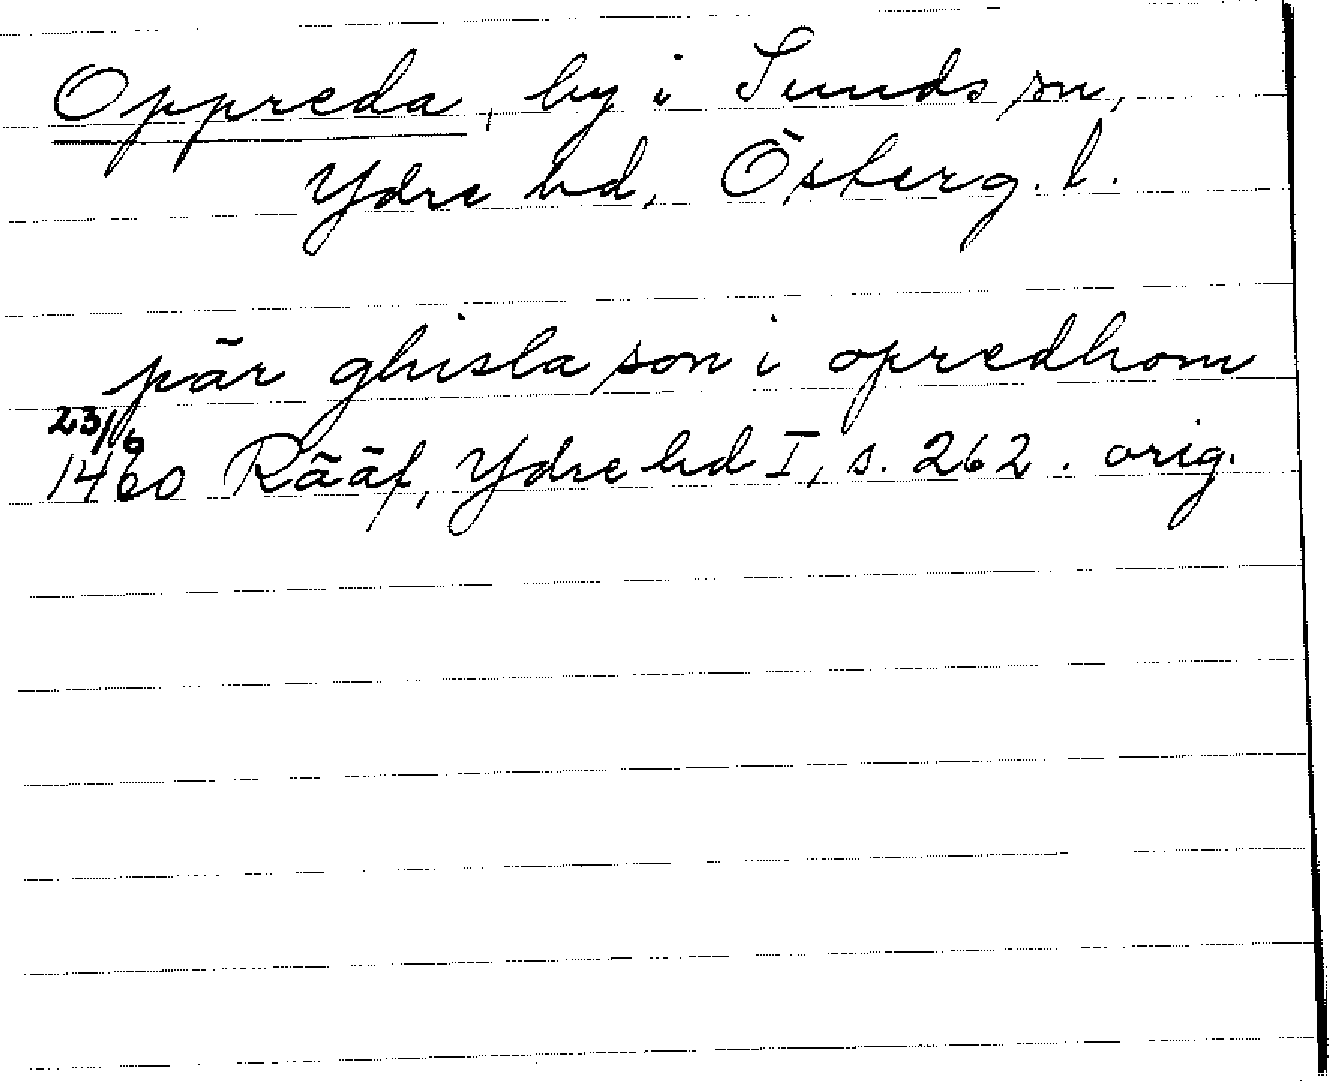 Oppreda, by i Sunds sn,
Ydre hd, Österg. l.
pär ghisla son i opredhom
23/6
1460 Rääf, Ydre hd I, s. 262. orig.